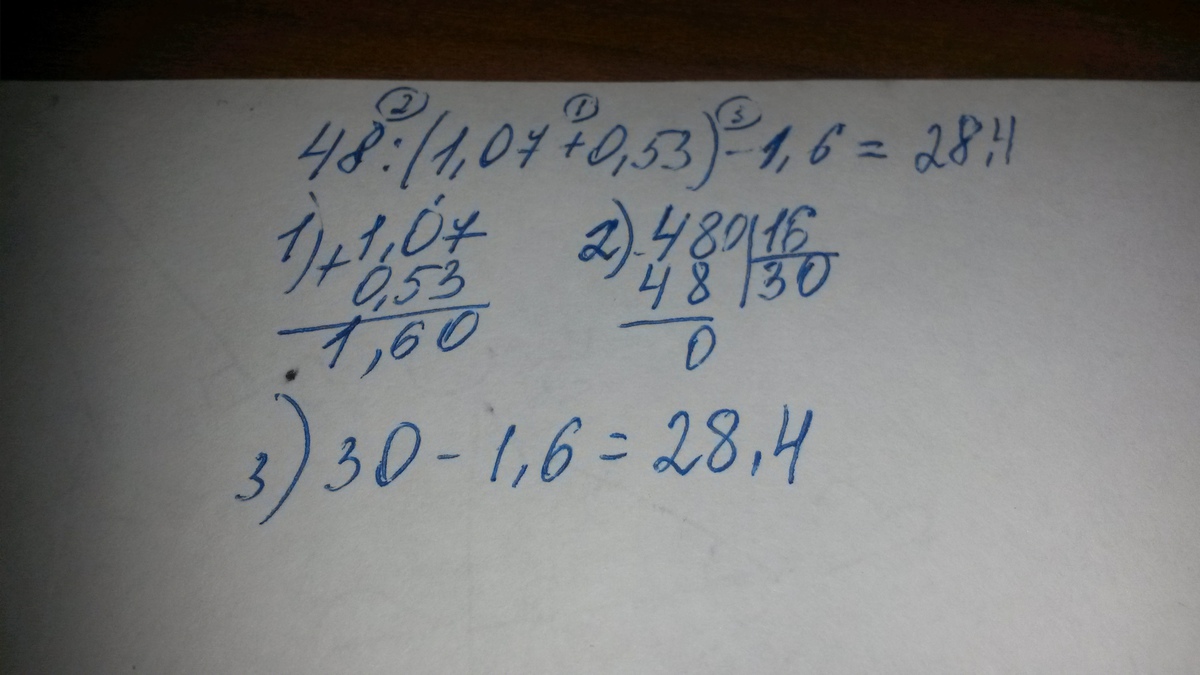 ② ① ③
48:(1,07+0,53)-1,6=28,4
1) +1,07
0,53
1,60
2) -480|16
48 |30
0
3) 30-1,6=28,4